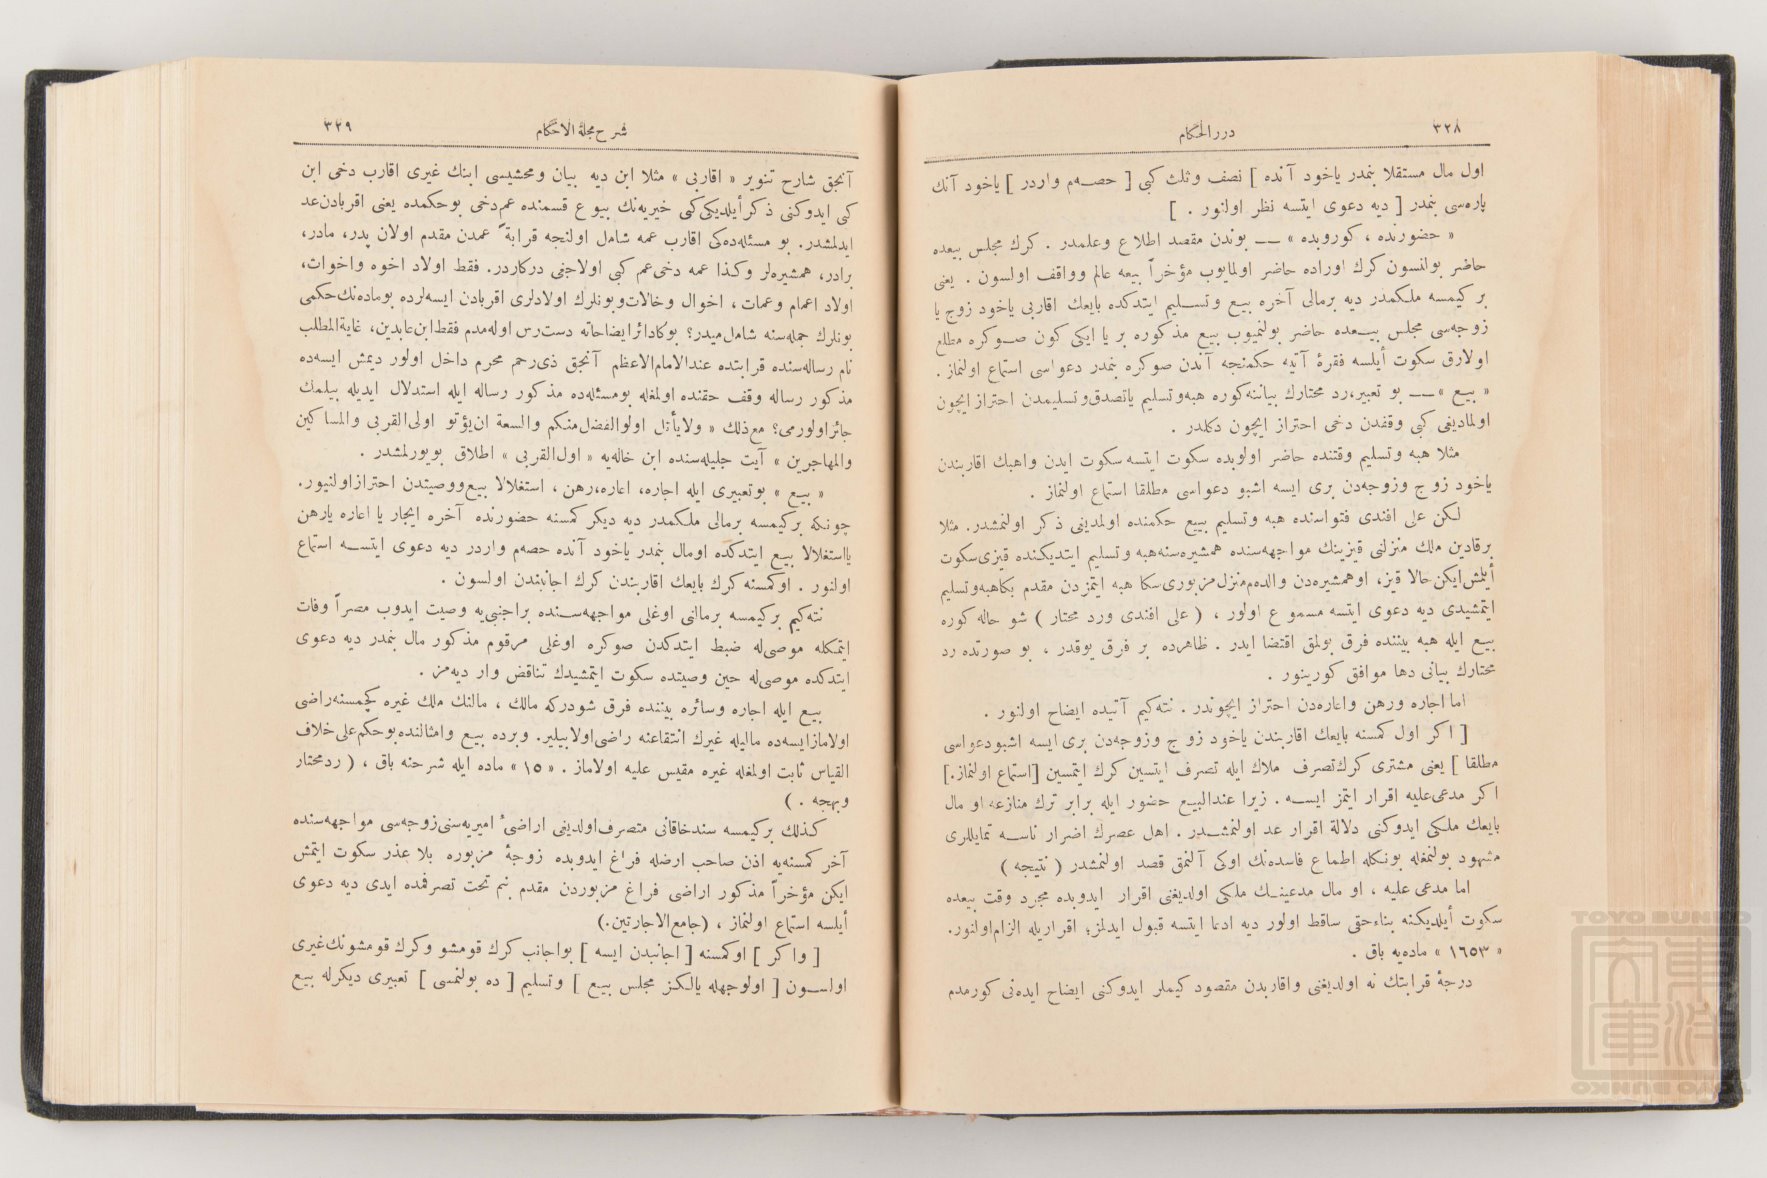 ٣٢٨
دررالحكام
اول مال مستقلا بنمدر ياخود آنده ] نصف وثلث كبى [ حصه‌م واردر ] ياخود آنك
پاره‌سى بنمدر [ ديه دعوى ايتسه نظر اولنور . ]
« حضورنده ، كوروبده » — بوندن مقصد اطلاع وعلمدر . كرك مجلس بيعده
حاضر بولنسون كرك اوراده حاضر اولمايوب مؤخراً بيعه عالم وواقف اولسون . يعنى
بر كيمسه ملكمدر ديه برمالى آخره بيع وتسليم ايتدكده بايعك اقاربى ياخود زوج يا
زوجه‌سى مجلس بيعده حاضر بولنميوب بيع مذكوره بر يا ايكى كون صوكره مطلع
اولارق سكوت أيلسه فقرۀ آتيه حكمنجه آندن صوكره بنمدر دعواسى استماع اولنماز .
« بيع » — بو تعبير،رد محتارك بياننه‌كوره هبه‌وتسليم ياتصدق‌وتسليمدن احترازايچون
اولماديغى كبى وقفدن دخى احتراز ايچون دكلدر .
مثلا هبه وتسليم وقتنده حاضر اولوبده سكوت ايتسه سكوت ايدن واهبك اقاربندن
ياخود زوج وزوجه‌دن برى ايسه اشبو دعواسى مطلقا استماع اولنماز .
لكن على افندى فتواسنده هبه وتسليم بيع حكمنده اولمدينى ذكر اولنمشدر. مثلا
برقادين ملك منزلنى قيزينك مواجهه‌سنده همشيره‌سنه‌هبه وتسليم ايتديكنده قيزى‌سكوت
أيلمش‌ايكن‌حالا قيز، اوهمشيره‌دن والده‌م‌منزل‌مزبورى‌سكا هبه ايتمزدن مقدم بكاهبه‌وتسليم
ايتمشيدى ديه دعوى ايتسه مسموع اولور ، ( على افندى ورد محتار ) شو حاله كوره
بيع ايله هبه بيننده فرق بولمق اقتضا ايدر . ظاهرده بر فرق يوقدر ، بو صورتده رد
محتارك بيانى دها موافق كورينور .
اما اجاره ورهن واعاره‌دن احتراز ايچوندر . نته‌كيم آتيده ايضاح اولنور .
[ اكر اول كمسنه بايعك اقاربندن ياخود زوج وزوجه‌دن برى ايسه اشبودعواسى
مطلقا ] يعنى مشترى كرك‌تصرف ملاك ايله تصرف ايتسين كرك ايتمسين [استماع اولنماز.]
اكر مدعى‌عليه اقرار ايتمز ايسه . زيرا عندالبيع حضور ايله برابر ترك منازعه او مال
بايعك ملكى ايدوكنى دلالة اقرار عد اولنمشدر . اهل عصرك اضرار ناسه تمايللرى
مشهود بولنمغله بونكله اطماع فاسده‌نك اوكى آلنمق قصد اولنمشدر ( نتيجه )
اما مدعى عليه ، او مال مدعينك ملكى اولديغنى اقرار ايدوبده مجرد وقت بيعده
سكوت أيلديكنه بناءحقى ساقط اولور ديه ادعا ايتسه قبول ايدلمز؛ اقراريله الزام‌اولنور.
« ١٦٥٣ » ماده‌يه باق .
درجۀ قرابتك نه اولديغنى واقاربدن مقصود كيملر ايدوكنى ايضاح ايده‌نى كورمدم
شرح مجلة الاحكام
٣٢٩
آنجق شارح تنوير « اقاربى » مثلا ابن ديه بيان ومحشيسى ابنك غيرى اقارب دخى ابن
كبى ايدوكنى ذكرأيلديكى‌كبى خيريه‌نك بيوع قسمنده عم‌دخى بوحكمده يعنى اقربادن‌عد
ايدلمشدر. بو مسئله‌ده‌كى اقارب عمه شامل اولنجه قرابةً عمدن مقدم اولان پدر، مادر،
برادر، همشيره‌لر وكذا عمه دخى‌عم كبى اولاجغى دركاردر. فقط اولاد اخوه واخوات،
اولاد اعمام وعمات ، اخوال وخالات‌وبونلرك اولادلرى اقربادن ايسه‌لرده بوماده‌نك‌حكمى
بونلرك جمله‌سنه شامل‌ميدر؟ بوكادائرايضاحاته دست‌رس اوله‌مدم فقط‌ابن‌عابدين، غاية‌المطلب
نام رساله‌سنده قرابتده عندالامام‌الاعظم آنجق ذى‌رحم محرم داخل اولور ديمش ايسه‌ده
مذكور رساله وقف حقنده اولمغله بومسئله‌ده مذكور رساله ايله استدلال ايديله بيلمك
جائزاولورمى؟ مع‌ذلك « ولايأتل اولوالفضل‌منكم والسعة ان‌يؤتو اولى‌القربى والمساكين
والمهاجرين » آيت جليله‌سنده ابن خاله‌يه « اول‌القربى » اطلاق بويورلمشدر .
« بيع » بوتعبيرى ايله اجاره، اعاره،رهن ، استغلالا بيع‌ووصيتدن احترازاولنيور.
چونكه بركيمسه برمالى ملكمدر ديه ديكر كمسنه حضورنده آخره ايجار يا اعاره يارهن
يااستغلالا بيع ايتدكده اومال بنمدر ياخود آنده حصه‌م واردر ديه دعوى ايتسه استماع
اولنور . اوكمسنه كرك بايعك اقاربندن كرك اجانبدن اولسون .
نته‌كيم بركيمسه برمالنى اوغلى مواجهه‌سنده براجنبى‌يه وصيت ايدوب مصراً وفات
ايتمكله موصى‌له ضبط ايتدكدن صوكره اوغلى مرقوم مذكور مال بنمدر ديه دعوى
ايتدكده موصى‌له حين وصيتده سكوت ايتمشيدك تناقض وار ديه‌مز .
بيع ايله اجاره وسائره بيننده فرق شودركه مالك ، مالنك ملك غيره كچمسنه‌راضى
اولامازايسه‌ده ماليله غيرك انتقاعنه راضى‌اولابيلير. وبرده بيع وامثالنده‌بوحكم‌على‌خلاف
القياس ثابت اولمغله غيره مقيس عليه اولاماز . « ١٥ » ماده ايله شرحنه باق ، ( ردمحتار
وبهجه . )
كذلك بركيمسه سندخاقانى متصرف‌اولديغى اراضئ اميريه‌سنى‌زوجه‌سى مواجهه‌سنده
آخر كمسنه‌يه اذن صاحب ارضله فراغ ايدوبده زوجۀ مزبوره بلا عذر سكوت ايتمش
ايكن مؤخراً مذكور اراضى فراغ مزبوردن مقدم بنم تحت تصرفمده ايدى ديه دعوى
أيلسه استماع اولنماز ، (جامع‌الاجارتين.)
[ واكر ] اوكمسنه [ اجانبدن ايسه ] بواجانب كرك قومشو وكرك قومشونك‌غيرى
اولسون [ اولوجهله يالكز مجلس بيع ] وتسليم [ ده بولنمسى ] تعبيرى ديكرله بيع
TOYO BUNKO
TOYO BUNKO